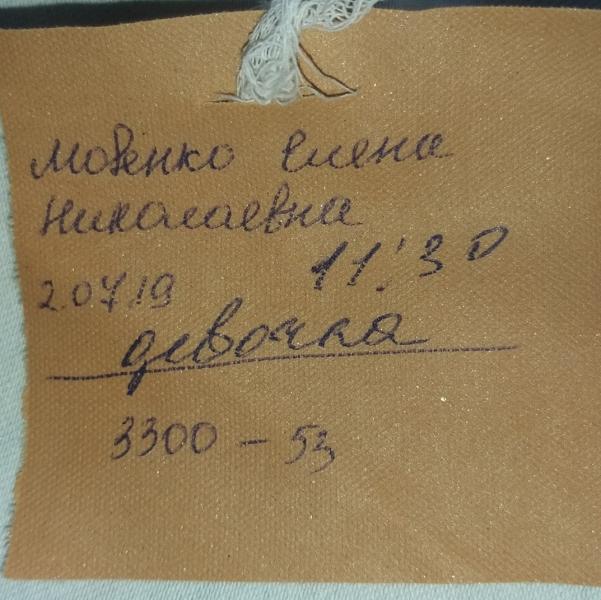 Мовенко Елена
Николаевна
2.07.19 11:30
девочка
3300 - 53